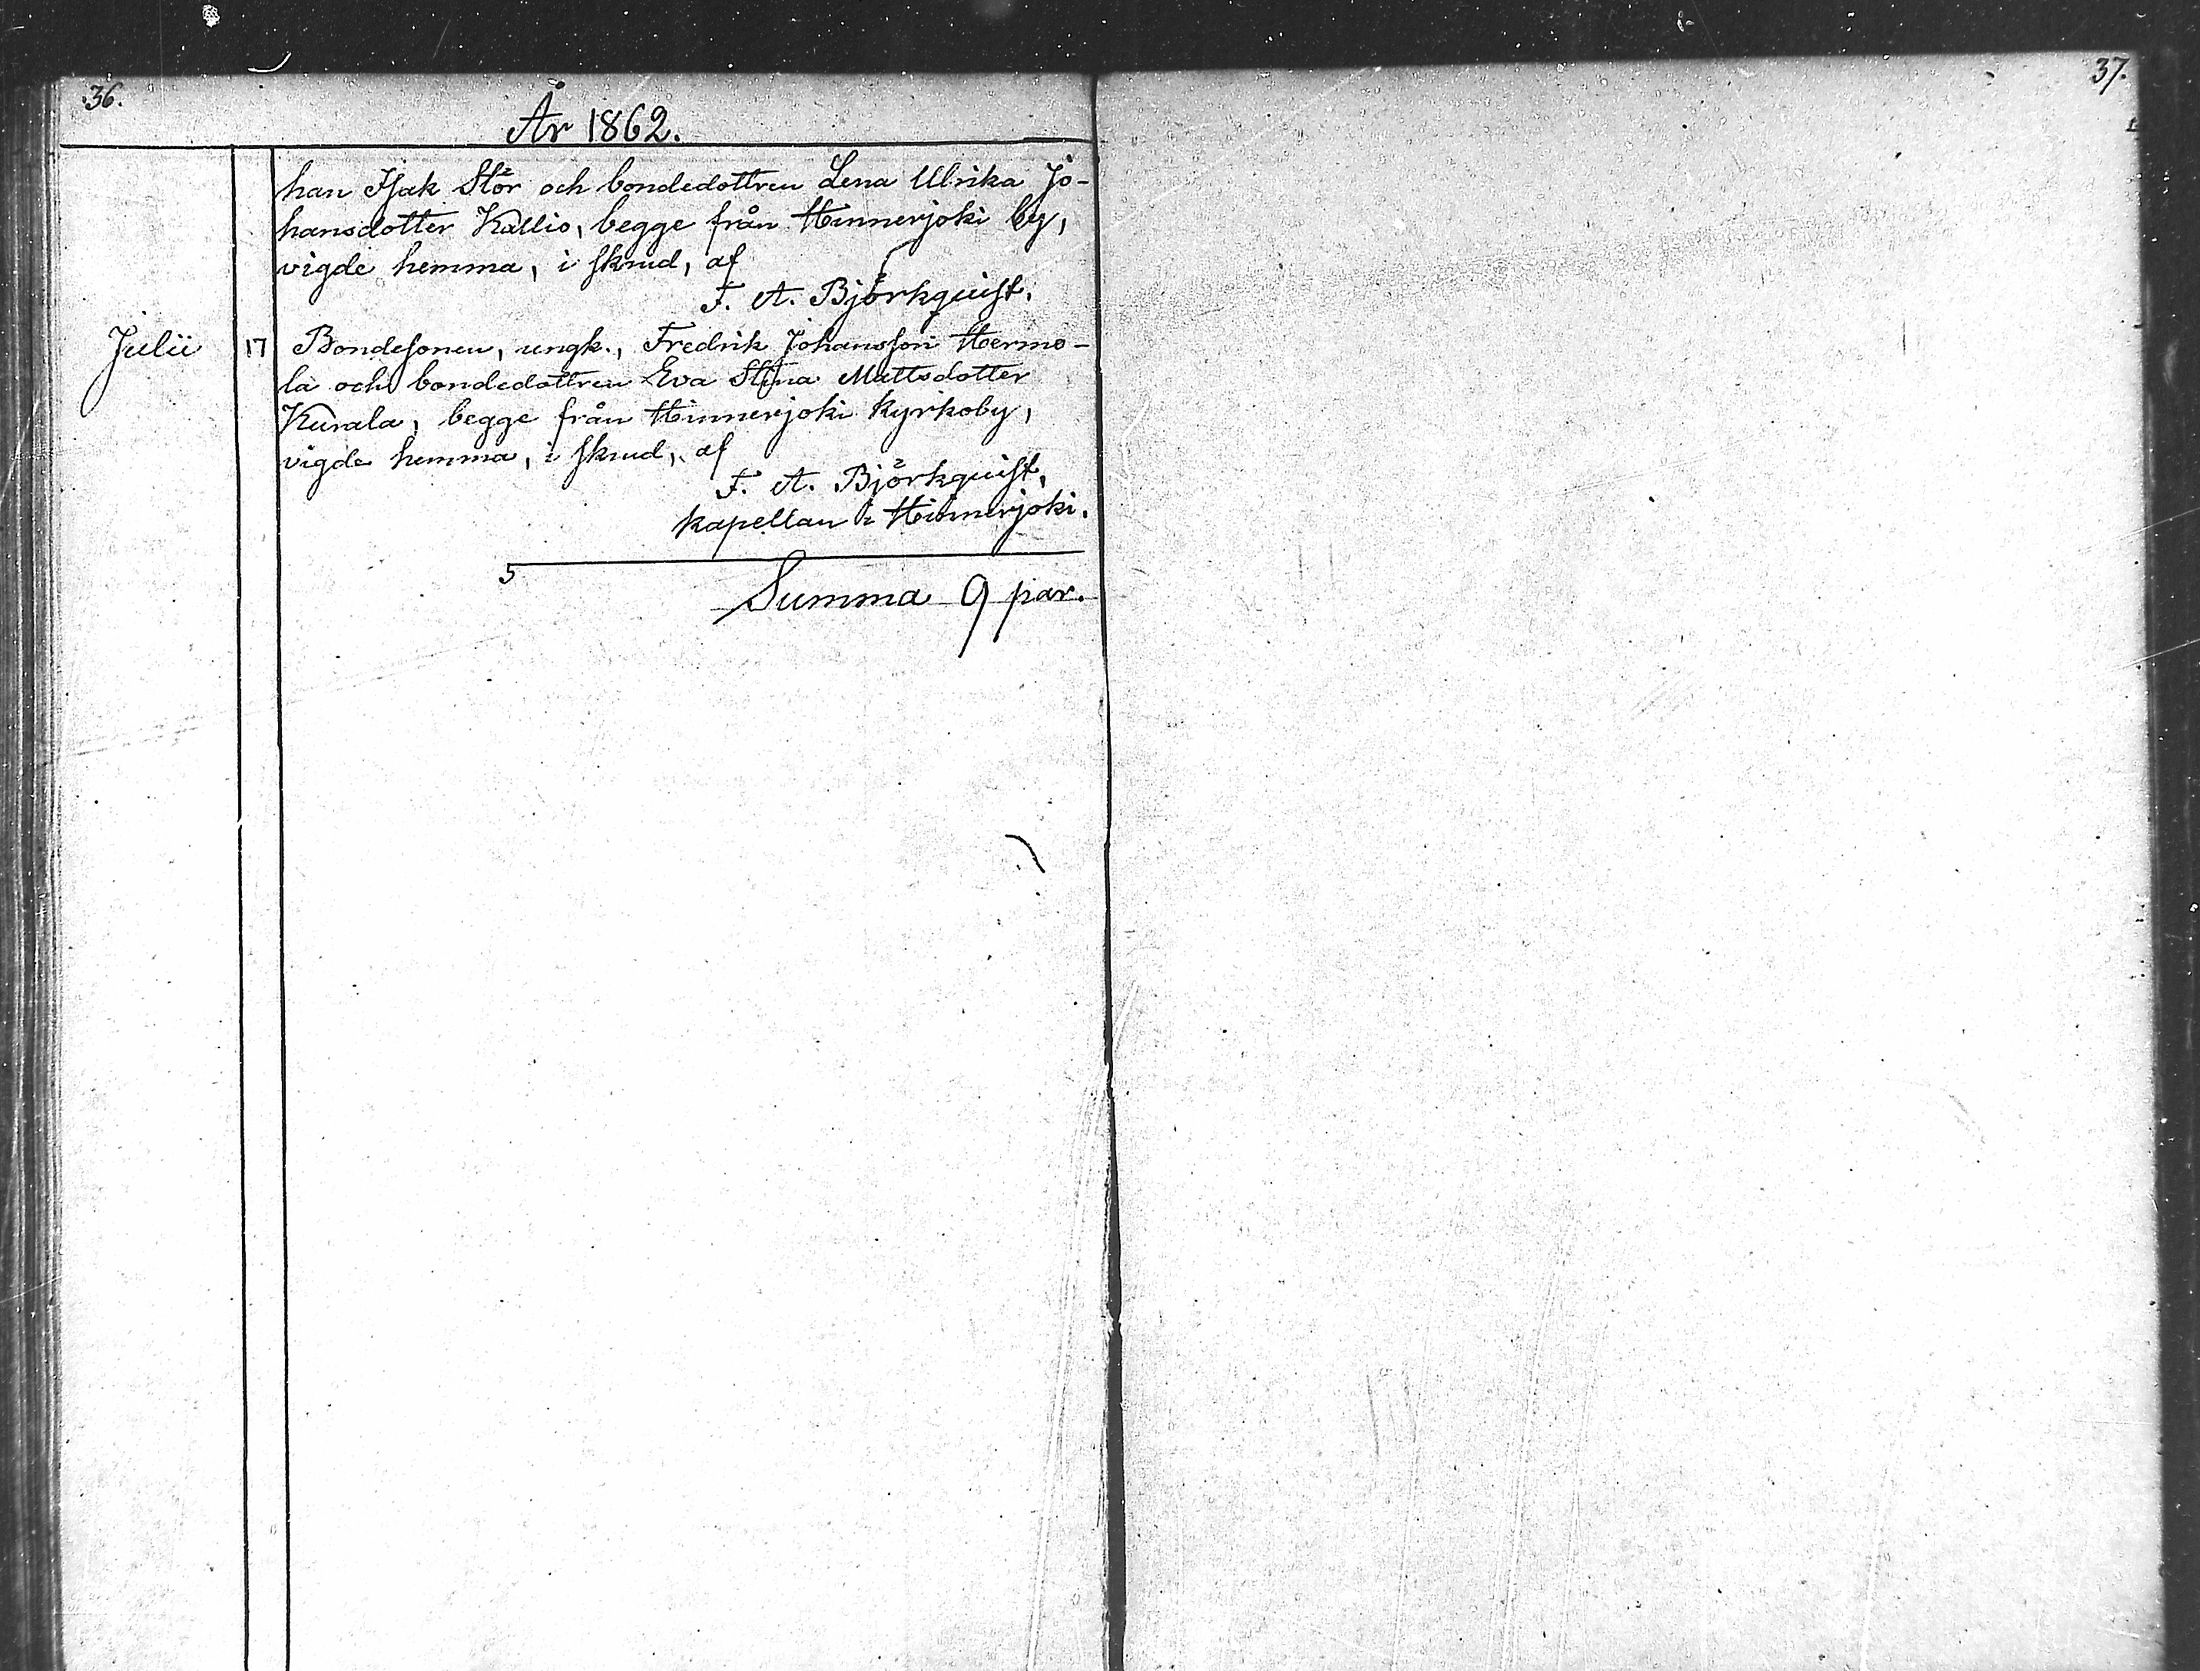 36.
37.
År 1862.
han Isak Stör och bondedottren Lena Ulrika Jo-
hansdotter Kallio, begge från Hinnerjoki by,
vigde hemma, i skrud, af
F. A. Björkquist.
Julii 17 Bondesonen, ungk., Fredrik Johansson Hermo-
la och bondedottren Eva Stina Mattsdotter
Kurala, begge från Hinnerjoki Kyrkoby,
vigde hemma, i skrud, af
F. A. Björkquist,
kapellan i Hinnerjoki.
5
Summa 9 par.